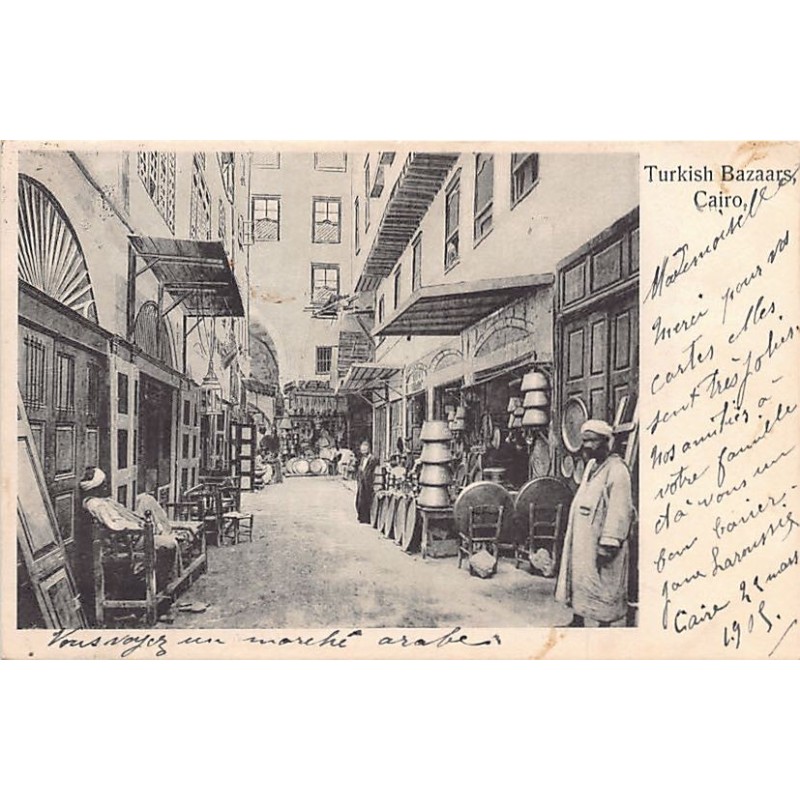 Turkish Bazaars,
Cairo,
Mademoiselle
Merci pour vos
cartes elles
sont très jolies.
Nos amitiés à
votre famille
et à vous un
bon baiser.
Caire 21 mars
1905.
Vous voyez un marché arabe